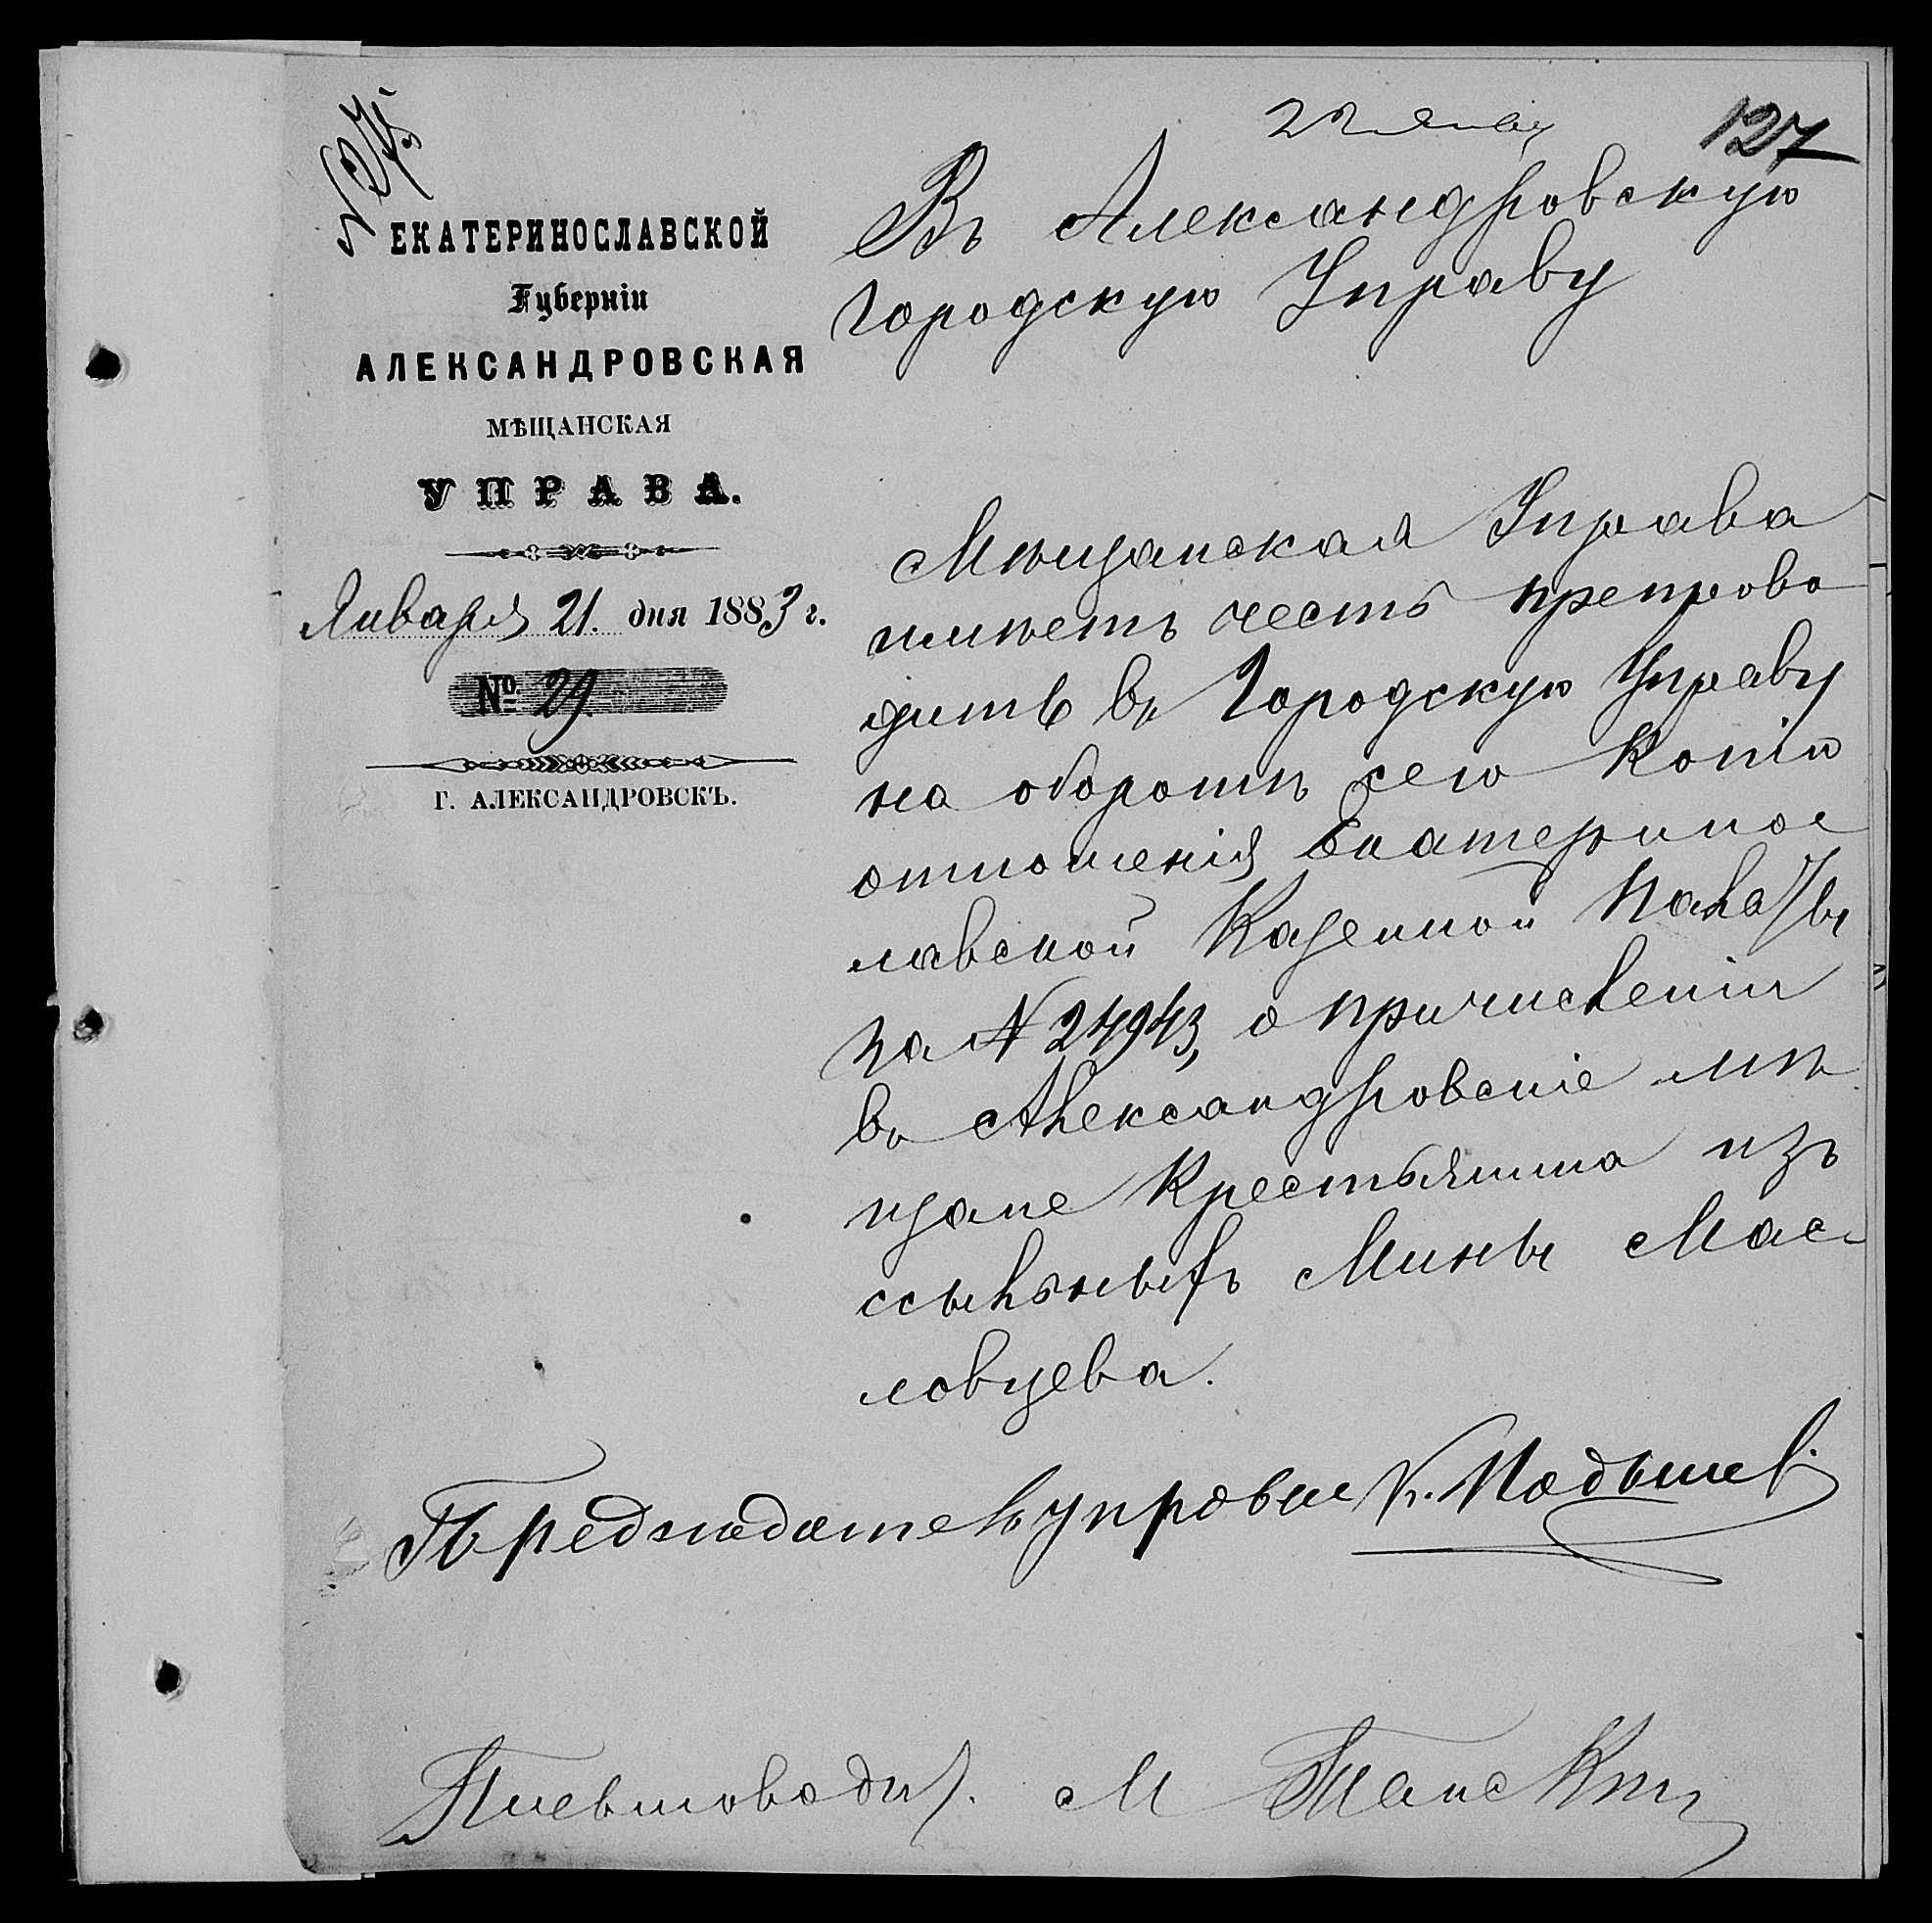 22 Янв
127
ЕКАТЕРИНОСЛАВСКОЙ
Губерніи
АЛЕКСАНДРОВСКАЯ
МѢЩАНСКАЯ
УПРАВА.
Января 21. дня 1883 г.
№ 29.
Г. АЛЕКСАНДРОВСКЪ.
Въ Александровскую
Городскую Управу
Мѣщанская Управа
имѣетъ честь препрово
дить въ Городскую Управу
на оборотѣ сего копію
отношенія Екатеринос
лавской Казенной Палаты
за № 24943, о причисленіи
въ Александровскіе мѣ
щане Крестьянина изъ
ссыльныхъ Мины Мас-
ловцева.
Предсѣдатель управы К.
Письмовод. М